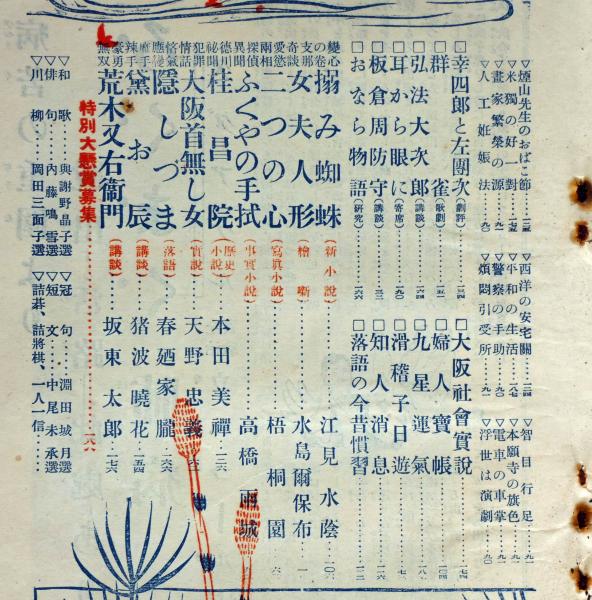 ▽煙山先生のおばこ節
▽米獨の好一對
▽畫家繁榮の源
人工妊娠法
▽西洋の安宅關
▽平和の生活
▽警察の手助
煩悶引受所
▽智目行足
▽本願寺の旗色
▽電車の車掌
浮世は演劇
□幸四郎と左團次(劇評)
□群雀(歌劇)
□弘法大次郎(講談)
□耳から眼に(寄席)
□板倉周防守(講談)
□おなら物語(研究)
□大阪社會實說
□婦人寶帳
□九星運氣
□滑稽子日遊
□知人消息
□落語の今昔慣習
變心の卷 搦み蜘蛛(新小說)江見水蔭
支那奇談 女夫人形(繪噺)水島爾保布
愛慾兩相 二つの心(寫眞小說)梧桐園
探偵異聞 ふくやの手拭(事實小說)高橋雨城
德川祕聞 桂昌院(歷史小說)本田美禪
犯罪情話 大阪首無し女(實說)天野忠義
悋氣應變 隱しづま(落語)春廼家朧
麻手辣手 黛お辰(講談)猪波曉花
豪勇無双 荒木又右衞門(講談)坂東太郎
特別大懸賞募集
▽和歌 與謝野晶子選
▽俳句 內藤鳴雪選
▽川柳 岡田三面子選
▽冠句 淵田城月選
▽短文 中尾未承選
▽詰碁、詰將棋、一人一信